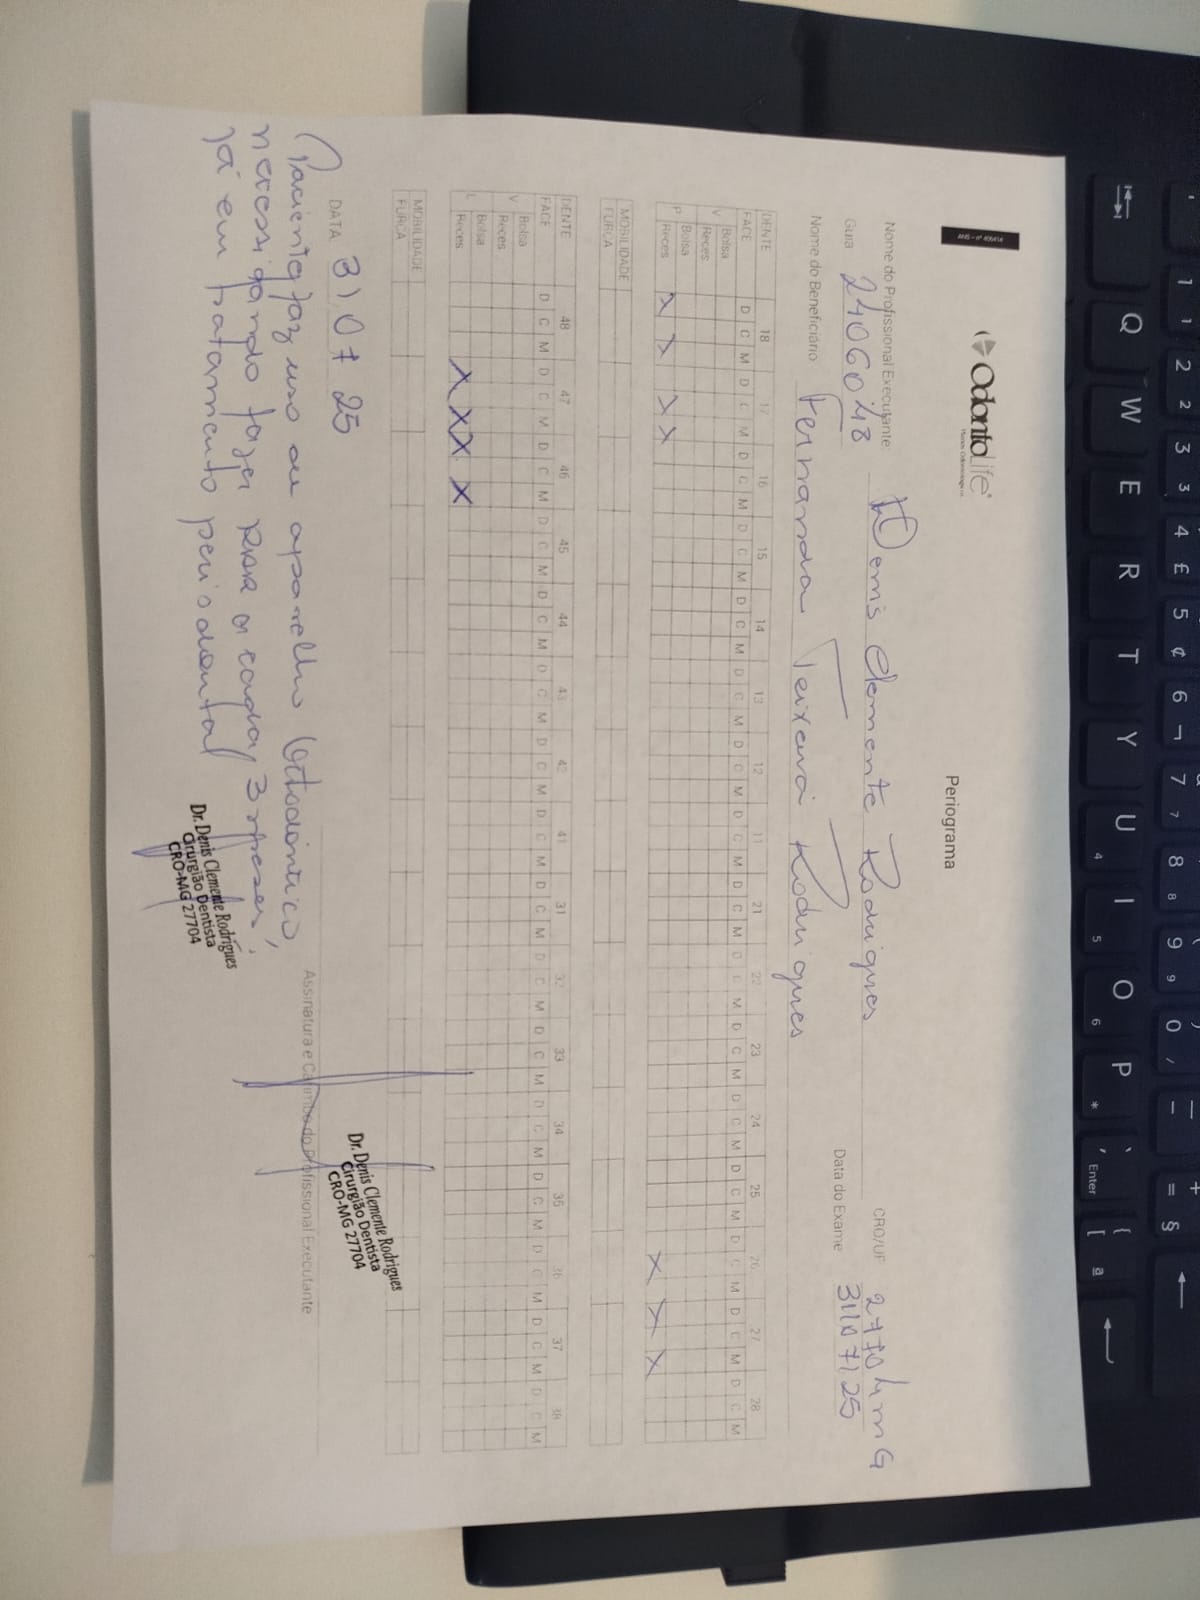 ANS - nº 406414
OdontoLife®
Planos Odontológicos
Periograma
Nome do Profissional Executante: Denis Clemente Rodrigues CRO/UF 27704 MG
Guia 2406048 Data do Exame 31/07/25
Nome do Beneficiário Fernanda Teixeira Rodrigues
DENTE 18 17 16 15 14 13 12 11 21 22 23 24 25 26 27 28
FACE D C M D C M D C M D C M D C M D C M D C M D C M D C M D C M D C M D C M D C M D C M D C M D C M
V Bolsa
Reces
P Bolsa
Reces X X X X X X X
MOBILIDADE
FURCA
DENTE 48 47 46 45 44 43 42 41 31 32 33 34 35 36 37 38
FACE D C M D C M D C M D C M D C M D C M D C M D C M D C M D C M D C M D C M D C M D C M D C M D C M
V Bolsa
Reces
L Bolsa
Reces X X X X
MOBILIDADE
FURCA
DATA 31 07 25
Assinatura e Carimbo do Profissional Executante
Dr. Denis Clemente Rodrigues
Cirurgião Dentista
CRO-MG 27704
Paciente faz uso de aparelho Ortodôntico,
necessigando fazer a cada 3 meses,
já em tratamento periodontal
Dr. Denis Clemente Rodrigues
Cirurgião Dentista
CRO-MG 27704
Q W E R T Y U I O P
Enter